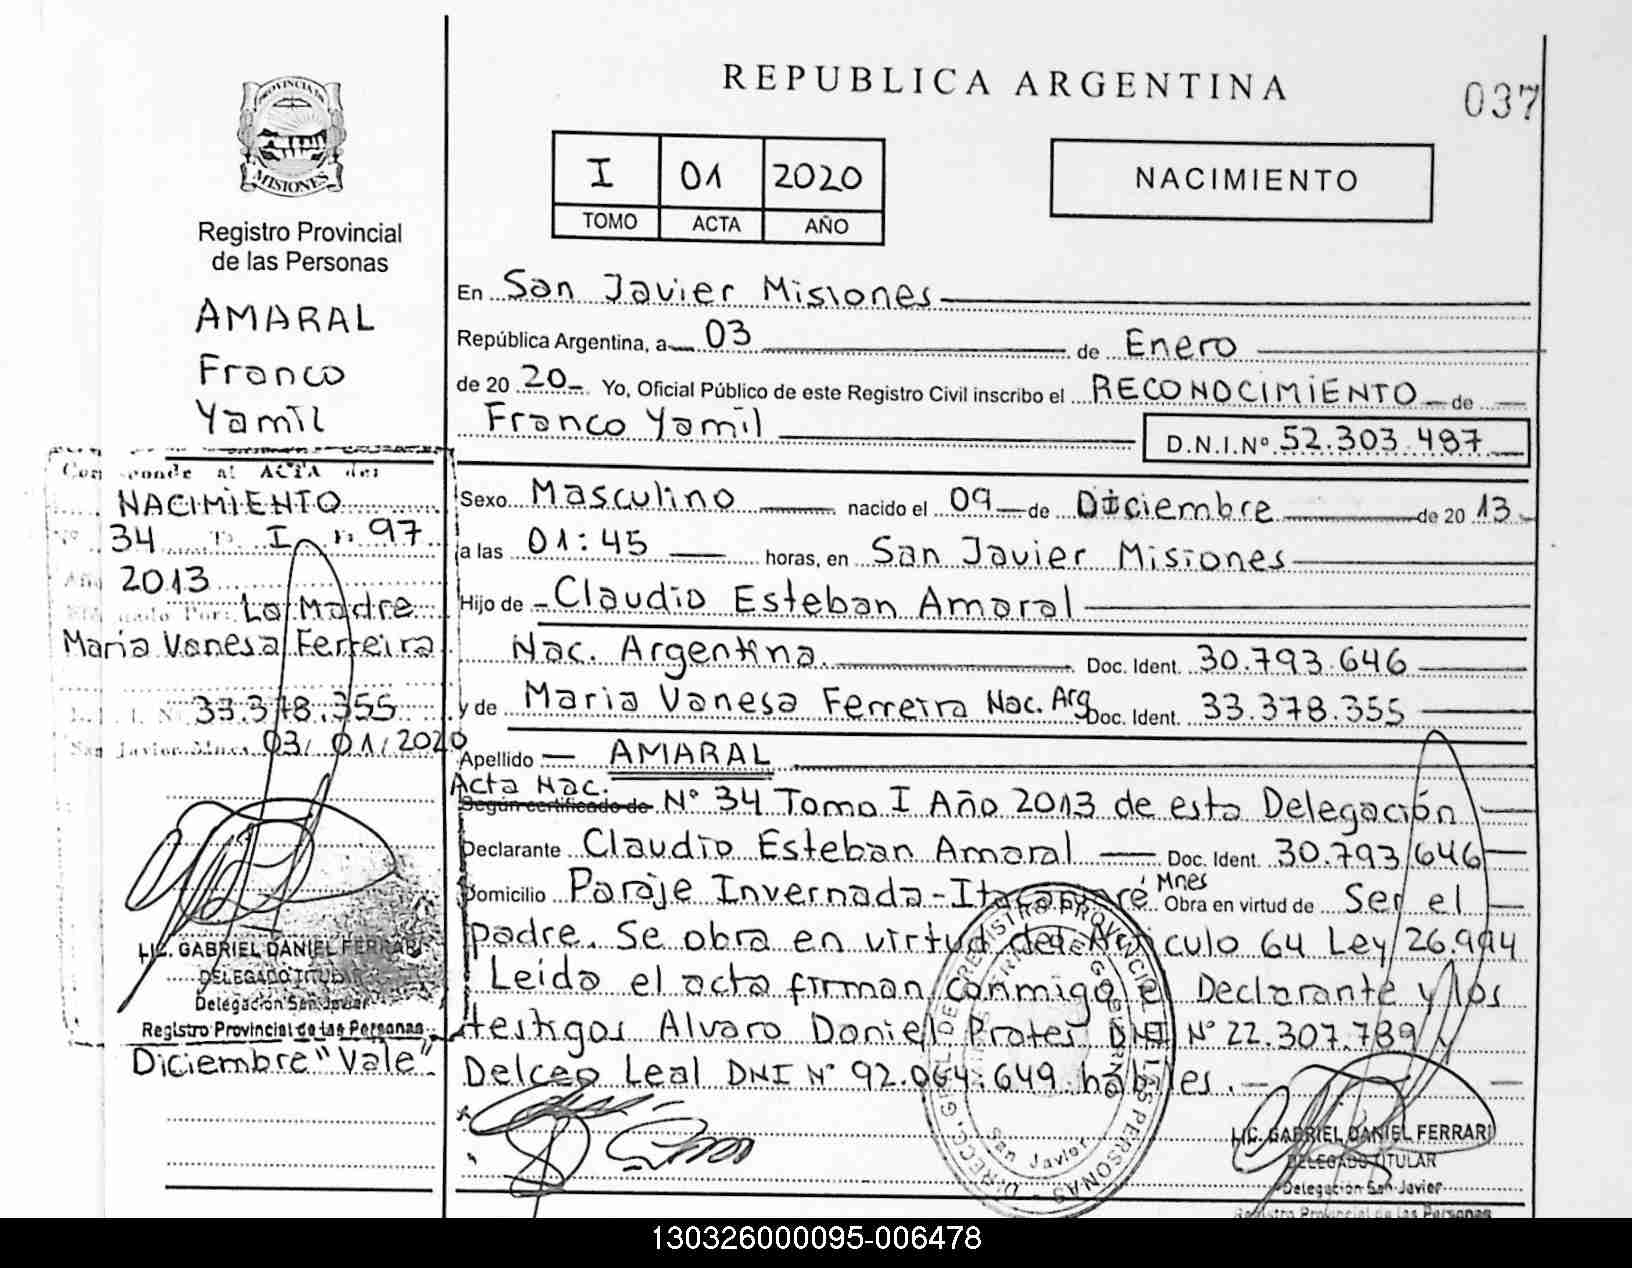 REPUBLICA ARGENTINA
037
I 01 2020
TOMO ACTA AÑO
NACIMIENTO
PROVINCIA DE
MISIONES
Registro Provincial
de las Personas
AMARAL
Franco
Yamil
Corresponde al ACTA de:
NACIMIENTO
Nº 34 T. I F. 97
Año 2013
Por: La Madre
Maria Vanesa Ferreira
D.N.I. Nº 33.378.355
San Javier Mnes. 03/01/2020
LIC. GABRIEL DANIEL FERRARI
DELEGADO TITULAR
Delegación San Javier
Registro Provincial de las Personas
Diciembre "Vale".
En San Javier Misiones
República Argentina, a 03 de Enero
de 20 20 Yo, Oficial Público de este Registro Civil inscribo el RECONOCIMIENTO de
Franco Yamil D.N.I.Nº 52.303.487
Sexo Masculino nacido el 09 de Diciembre de 20 13
a las 01:45 horas, en San Javier Misiones
Hijo de Claudio Esteban Amaral
Nac. Argentina. Doc. Ident. 30.793.646
y de Maria Vanesa Ferreira Nac. Arg Doc. Ident. 33.378.355
Apellido AMARAL
Acta Nac.
Según certificado de Nº 34 Tomo I Año 2013 de esta Delegación
Declarante Claudio Esteban Amaral Doc. Ident. 30.793.646
Domicilio Paraje Invernada-Itacaruaré Mnes Obra en virtud de Ser el
padre. Se obra en virtud del Articulo 64 Ley 26.994
Leida el acta firman conmigo el Declarante y los
testigos Alvaro Daniel Prates DNI Nº 22.307.789 y
Leal DNI Nº 92.064.649 habiles.
DIRECC. GRAL. DE REGISTRO PROVINCIAL DE LAS PERSONAS
San Javier
LIC. GABRIEL DANIEL FERRARI
DELEGADO TITULAR
Delegación San Javier
Registro Provincial de las Personas
130326000095-006478